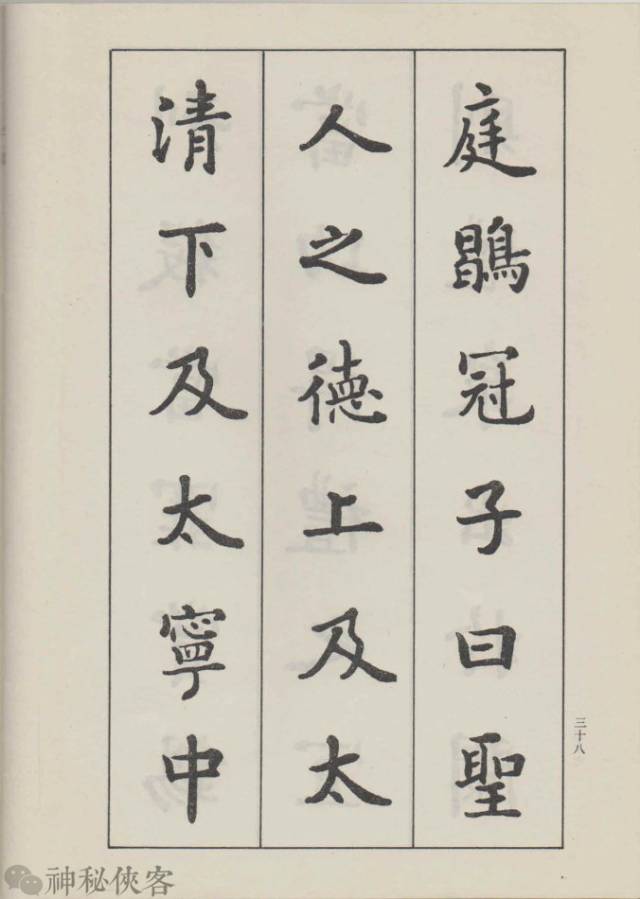 庭鶡冠子曰聖
人之德上及太
清下及太寧中
三十八
神秘俠客